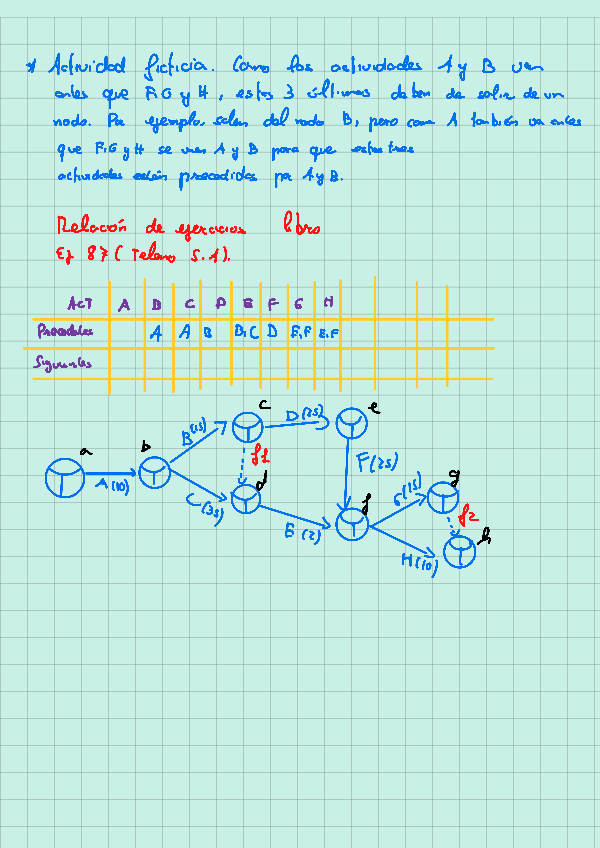 * Actividad ficticia. Como las actividades A y B van
antes que F, G y H, estas 3 últimas deben de salir de un
nodo. Por ejemplo salen del nodo B, pero como A también va antes
que F, G y H se unen A y B para que estas tres
actividades estén precedidas por A y B.
Relación de ejercicios libro
Ej 87 (Telano 5.1).
ACT A B C D E F G H
Precedentes A A B B,C D E,F E,F
Siguientes
a b c d e f g h
A(10)
B(15)
C(35)
D(25)
f1
E(2)
F(25)
G(15)
f2
H(10)